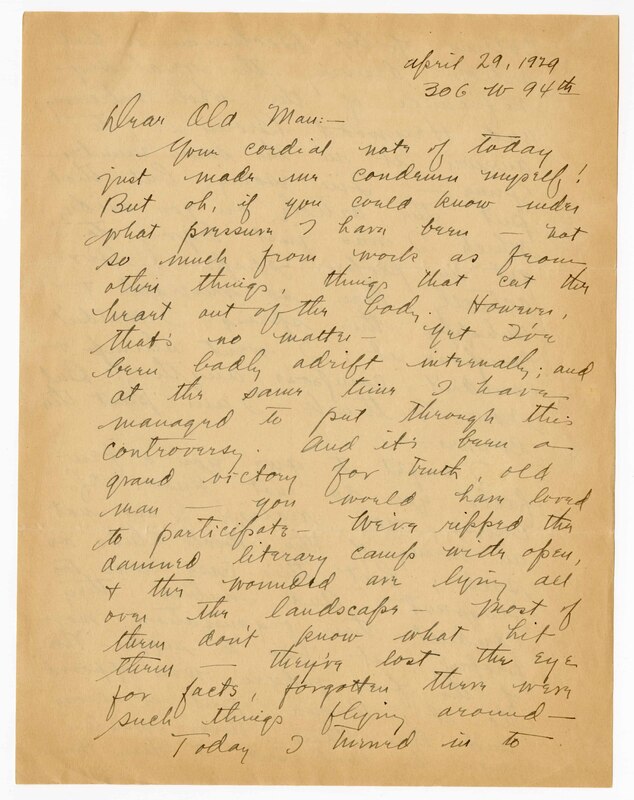 April 29, 1929
306 W 94th
Dear Old Man:—
Your cordial note of today
just made me condemn myself!
But oh, if you could know under
what pressure I have been — not
so much from work as from
other things, things that eat the
heart out of the body. However,
that's no matter — Yet I've
been badly adrift internally; and
at the same time I have
managed to put through this
controversy. And it's been a
grand victory for truth, old
man — you would have loved
to participate — We've ripped the
damned literary camp wide open,
& the wounded are lying all
over the landscape — Most of
them don't know what hit
them — they've lost the eye
for facts, forgotten there were
such things flying around —
Today I turned in to